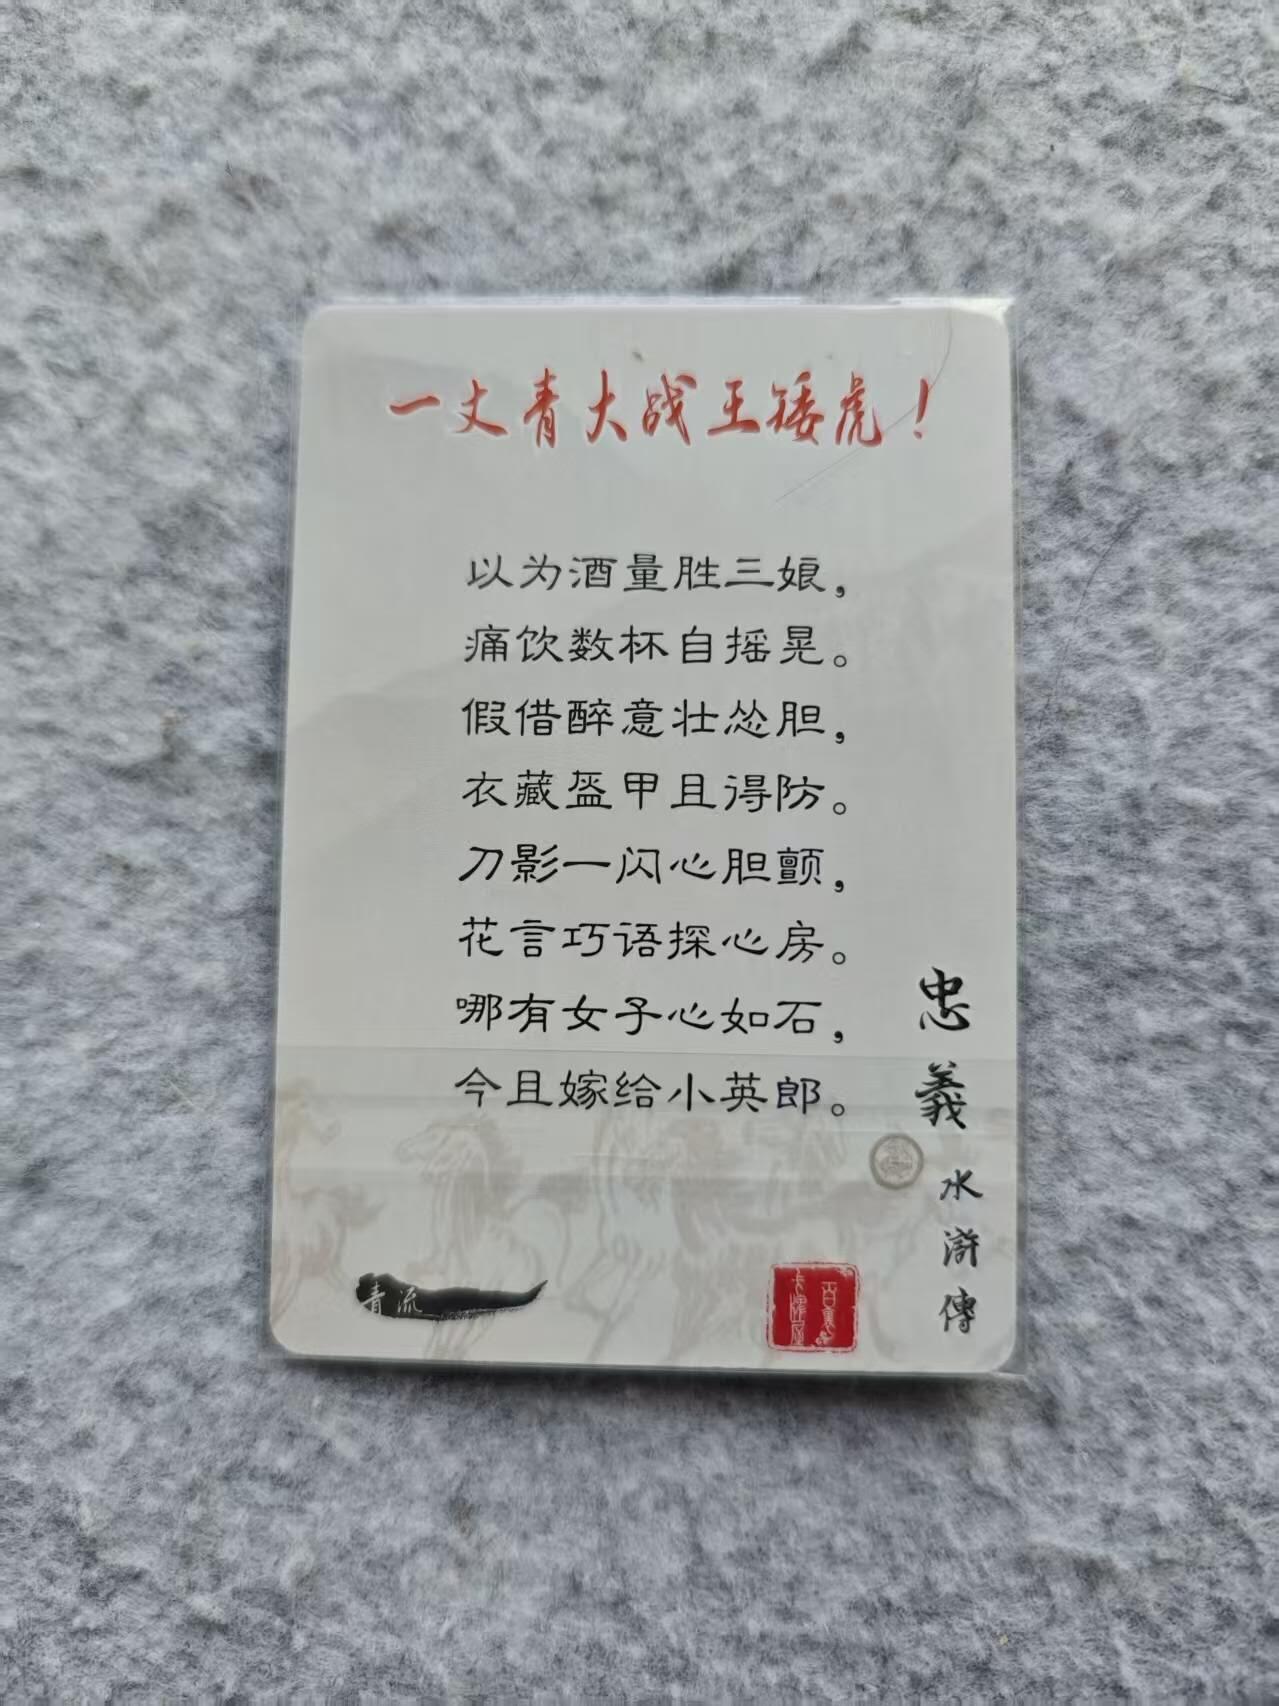 一丈青大战王矮虎！
以为酒量胜三娘，
痛饮数杯自摇晃。
假借醉意壮怂胆，
衣藏盔甲且得防。
刀影一闪心胆颤，
花言巧语探心房。
哪有女子心如石，
今且嫁给小英郎。
忠義
水滸傳
青流